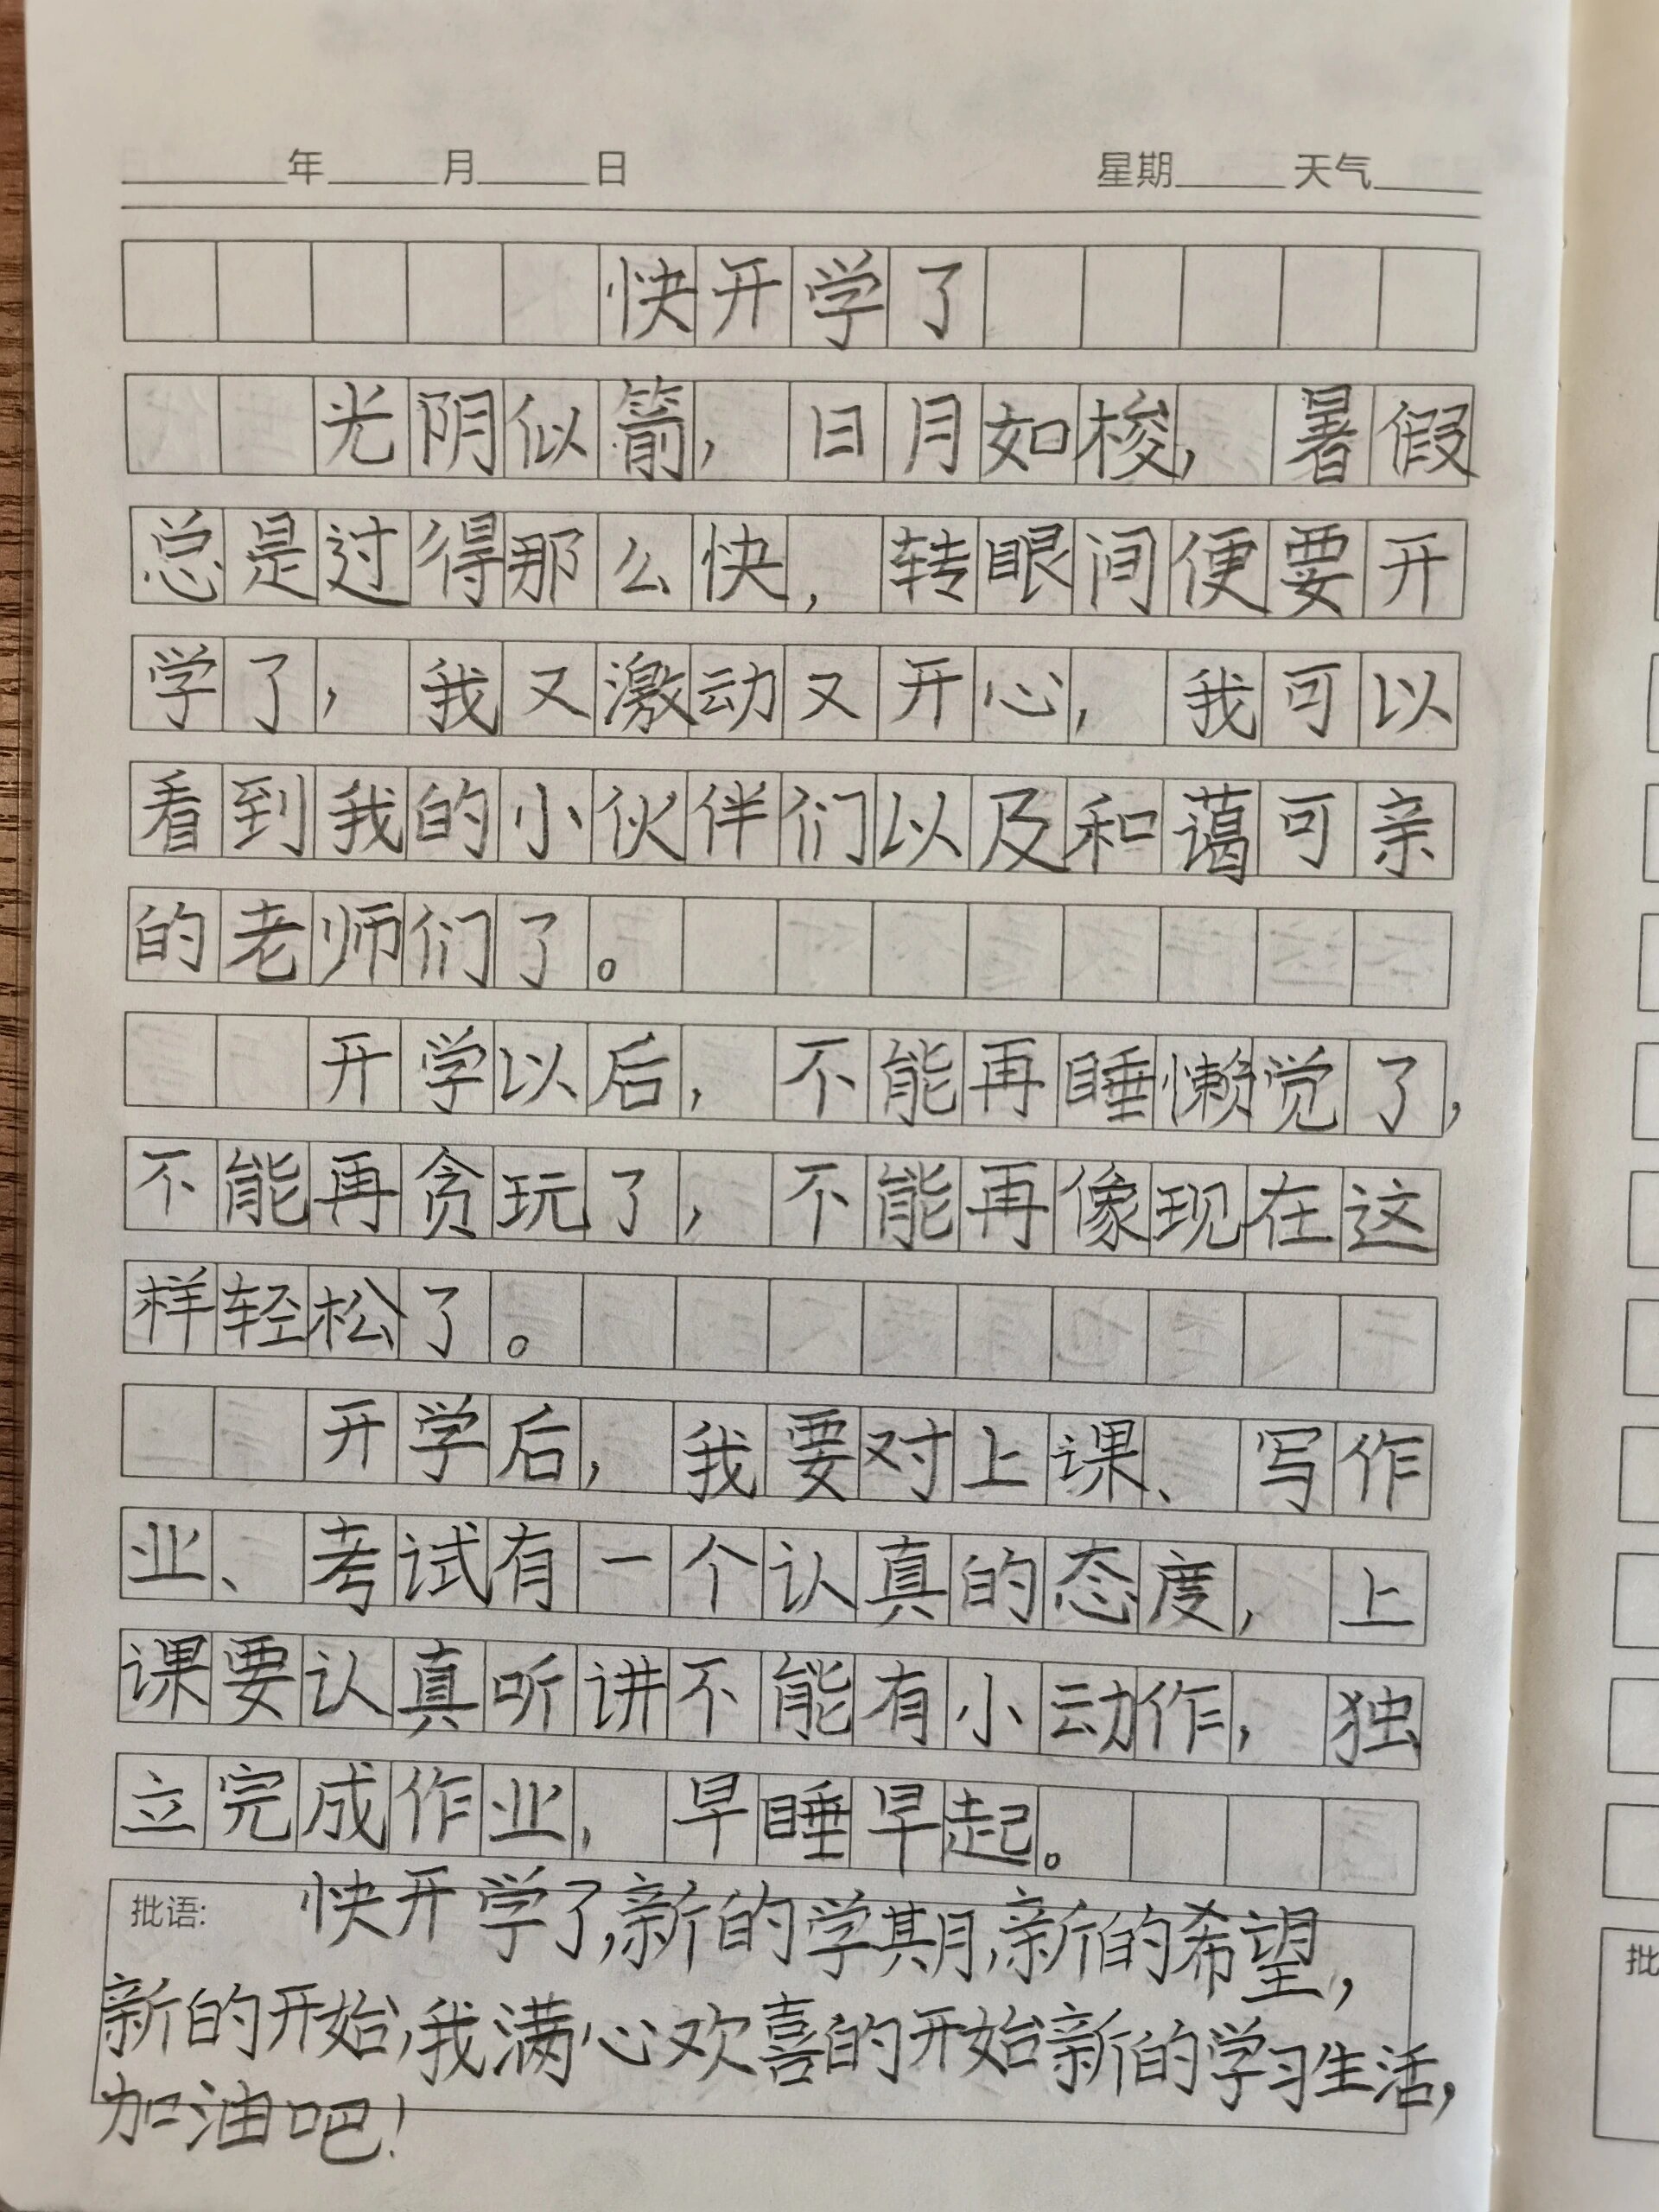 年 月 日 星期 天气
快开学了
光阴似箭，日月如梭，暑假
总是过得那么快，转眼间便要开
学了，我又激动又开心，我可以
看到我的小伙伴们以及和蔼可亲
的老师们了。
开学以后，不能再睡懒觉了，
不能再贪玩了，不能再像现在这
样轻松了。
开学后，我要对上课、写作
业、考试有一个认真的态度，上
课要认真听讲不能有小动作，独
立完成作业，早睡早起。
批语: 快开学了,新的学期,新的希望,
新的开始,我满心欢喜的开始新的学习生活,
加油吧!
批